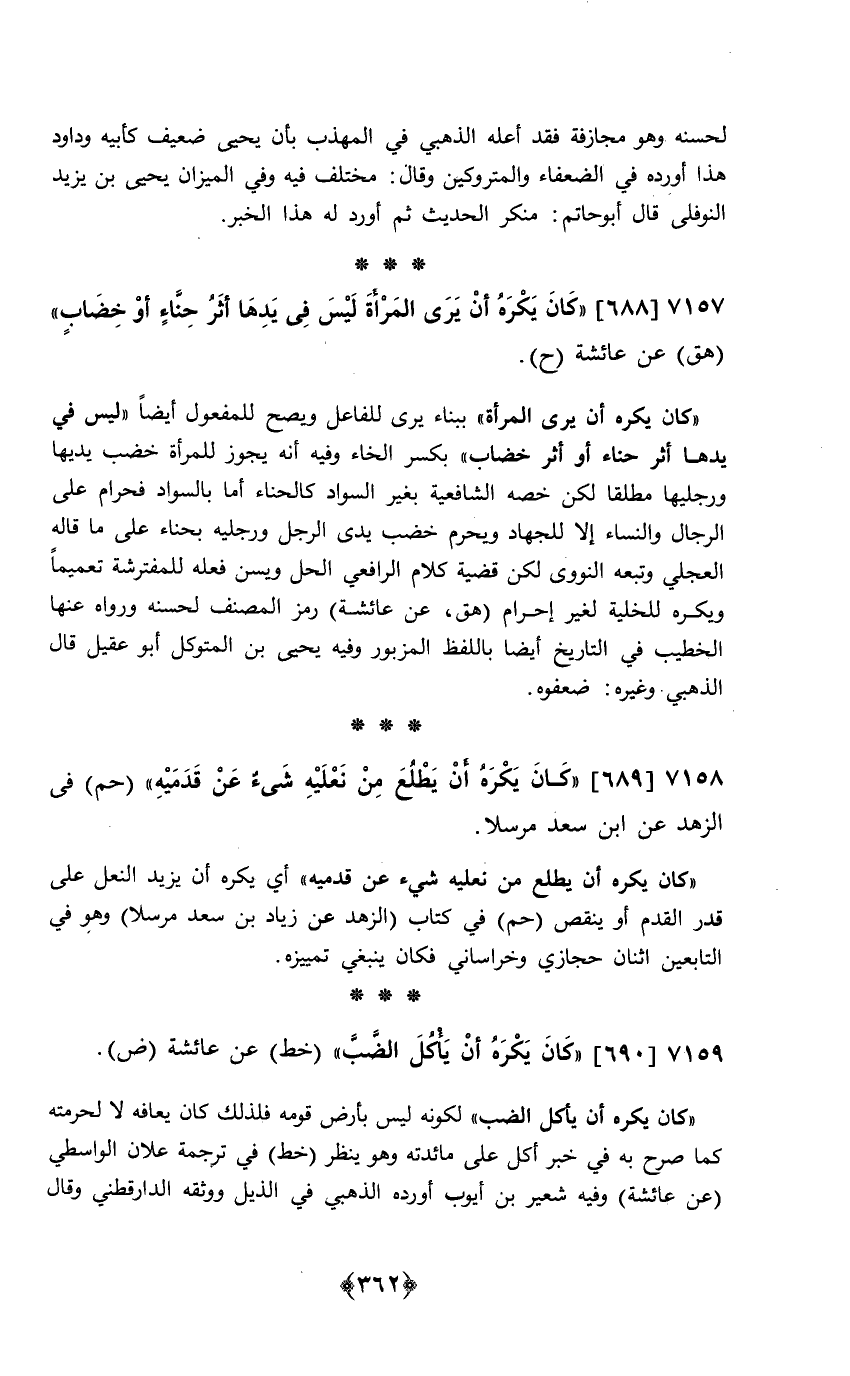 لحسنه وهو مجازفة فقد أعله الذهبي في المهذب بأن يحيى ضعيف كأبيه وداود
هذا أورده في الضعفاء والمتروكين وقال: مختلف فيه وفي الميزان يحيى بن يزيد
النوفلى قال أبوحاتم: منكر الحديث ثم أورد له هذا الخبر.
* * *
٧١٥٧ [٦٨٨] «كَانَ يَكْرَهُ أنْ يَرَى المَرْأَةَ لَيْسَ فِى يَدِهَا أثَرُ حِنَّاءٍ أوْ خِضَابٍ»
(هق) عن عائشة (ح).
«كان يكره أن يرى المرأة» ببناء يرى للفاعل ويصح للمفعول أيضاً «ليس في
يدهـا أثر حناء أو أثر خضاب» بكسر الخاء وفيه أنه يجوز للمرأة خضب يديها
ورجليها مطلقا لكن خصه الشافعية بغير السواد كالحناء أما بالسواد فحرام على
الرجال والنساء إلا للجهاد ويحرم خضب يدى الرجل ورجليه بحناء على ما قاله
العجلي وتبعه النووى لكن قضية كلام الرافعي الحل ويسن فعله للمفترشة تعميماً
ويكـره للخلية لغير إحـرام (هق، عن عائشـة) رمز المصنف لحسنه ورواه عنها
الخطيب في التاريخ أيضا باللفظ المزبور وفيه يحيى بن المتوكل أبو عقيل قال
الذهبي وغيره: ضعفوه.
* * *
٧١٥٨ [٦٨٩] «كَـانَ يَكْرَهُ أَنْ يَطْلُعَ مِنْ نَعْلَيْهِ شَىءٌ عَنْ قَدَمَيْهِ» (حم) فى
الزهد عن ابن سعد مرسلا.
«كان يكره أن يطلع من نعليه شيء عن قدميه» أي يكره أن يزيد النعل على
قدر القدم أو ينقص (حم) في كتاب (الزهد عن زياد بن سعد مرسلا) وهو في
التابعين اثنان حجازي وخراساني فكان ينبغي تمييزه.
* * *
٧١٥٩ [٦٩٠] «كَانَ يَكْرَهُ أنْ يَأْكُلَ الضَّبَّ» (خط) عن عائشة (ض).
«كان يكره أن يأكل الضب» لكونه ليس بأرض قومه فلذلك كان يعافه لا لحرمته
كما صرح به في خبر أكل على مائدته وهو ينظر (خط) في ترجمة علان الواسطي
(عن عائشة) وفيه شعير بن أيوب أورده الذهبي في الذيل ووثقه الدارقطني وقال
﴿٣٦٢﴾